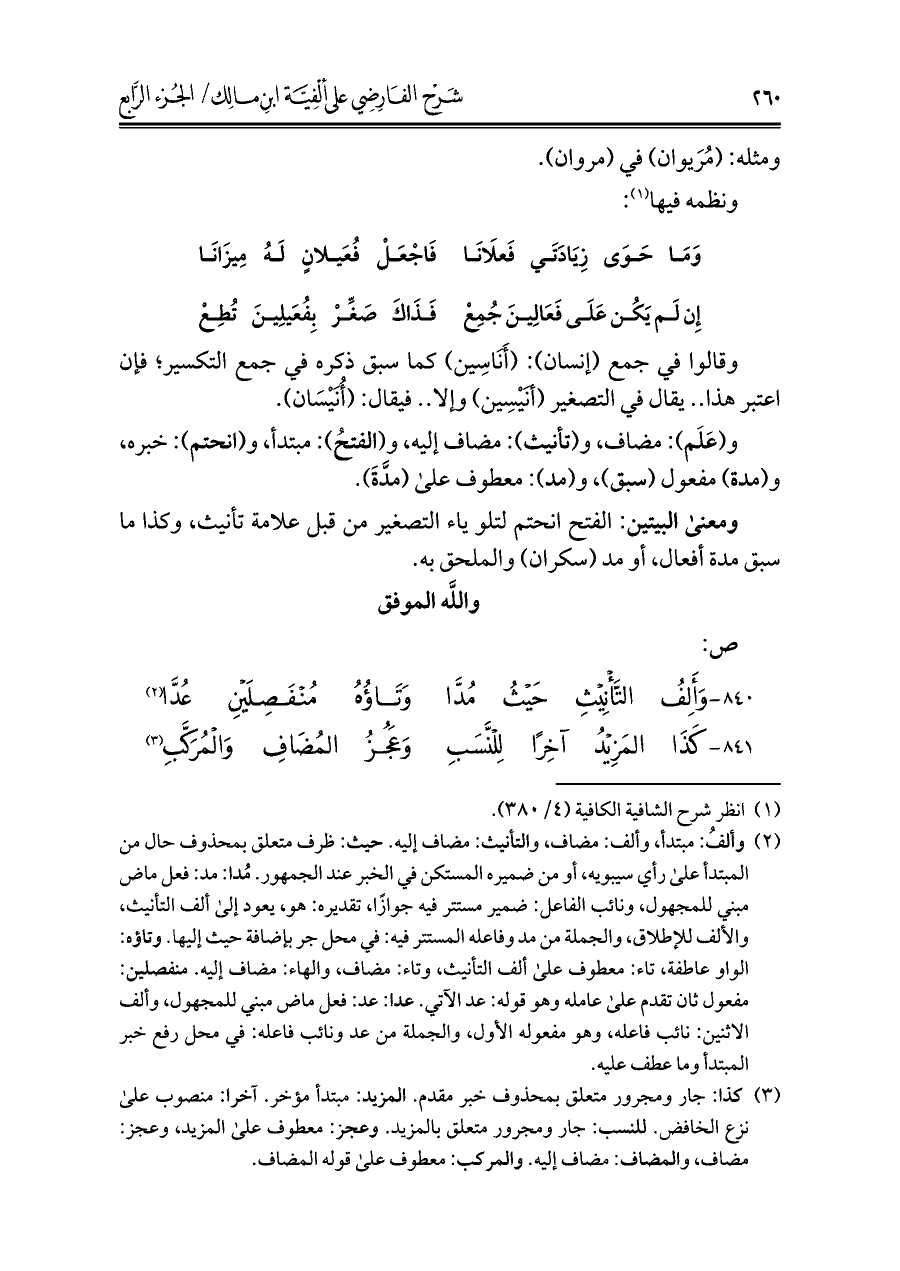 ٢٦٠ شَرْح الفَارِضِي على ألْفِيَّة ابنِ مَالِك/ الجُزء الرَّابع
ومثله: (مُرَيوان) في (مروان).
ونظمه فيها(١):
وَمَا حَوَى زِيَادَتَي فَعلَانَا فَاجْعَلْ فُعَيلانٍ لَهُ مِيزَانَا
إِن لَم يَكُن عَلَى فَعَالِينَ جُمِعْ فَذَاكَ صَغِّرْ بِفُعَيلِينَ تُطِعْ
وقالوا في جمع (إنسان): (أَنَاسِين) كما سبق ذكره في جمع التكسير؛ فإن
اعتبر هذا.. يقال في التصغير (أنَيْسِين) وإلا.. فيقال: (أُنَيْسَان).
و(عَلَم): مضاف، و(تأنيث): مضاف إليه، و(الفتحُ): مبتدأ، و(انحتم): خبره،
و(مدة) مفعول (سبق)، و(مد): معطوف علىٰ (مدَّةَ).
ومعنىٰ البيتين: الفتح انحتم لتلو ياء التصغير من قبل علامة تأنيث، وكذا ما
سبق مدة أفعال، أو مد (سكران) والملحق به.
واللَّه الموفق
ص:
٨٤٠- وَأَلِفُ التَّأْنِيْثِ حَيْثُ مُدَّا وَتَاؤُهُ مُنْفَصِلَيْنِ عُدَّا(٢)
٨٤١- كَذَا المَزِيْدُ آخِرًا لِلْنَّسَبِ وَعَجُزُ المُضَافِ وَالْمُرَكَّبِ(٣)
(١) انظر شرح الشافية الكافية (٤/ ٣٨٠).
(٢) وألفُ: مبتدأ، وألف: مضاف، والتأنيث: مضاف إليه. حيث: ظرف متعلق بمحذوف حال من
المبتدأ علىٰ رأي سيبويه، أو من ضميره المستكن في الخبر عند الجمهور. مُدا: مد: فعل ماض
مبني للمجهول، ونائب الفاعل: ضمير مستتر فيه جوازًا، تقديره: هو، يعود إلىٰ ألف التأنيث،
والألف للإطلاق، والجملة من مد وفاعله المستتر فيه: في محل جر بإضافة حيث إليها. وتاؤه:
الواو عاطفة، تاء: معطوف علىٰ ألف التأنيث، وتاء: مضاف، والهاء: مضاف إليه. منفصلين:
مفعول ثان تقدم علىٰ عامله وهو قوله: عد الآتي. عدا: عد: فعل ماض مبني للمجهول، وألف
الاثنين: نائب فاعله، وهو مفعوله الأول، والجملة من عد ونائب فاعله: في محل رفع خبر
المبتدأ وما عطف عليه.
(٣) كذا: جار ومجرور متعلق بمحذوف خبر مقدم. المزيد: مبتدأ مؤخر. آخرا: منصوب علىٰ
نزع الخافض. للنسب: جار ومجرور متعلق بالمزيد. وعجز: معطوف علىٰ المزيد، وعجز:
مضاف، والمضاف: مضاف إليه. والمركب: معطوف علىٰ قوله المضاف.